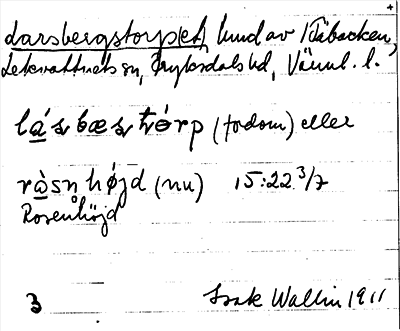 darsbergstorp(et), lund av Kåbacken,
Lekvattnets sn, Fryksdals hd, Värml. l.
lá̱ʂbæʂtó̱rp (fordom) eller
rà̱sn hø̀jd (nu) 15:22 3/7
Rosenhöjd
3 Isak Wallin 1911